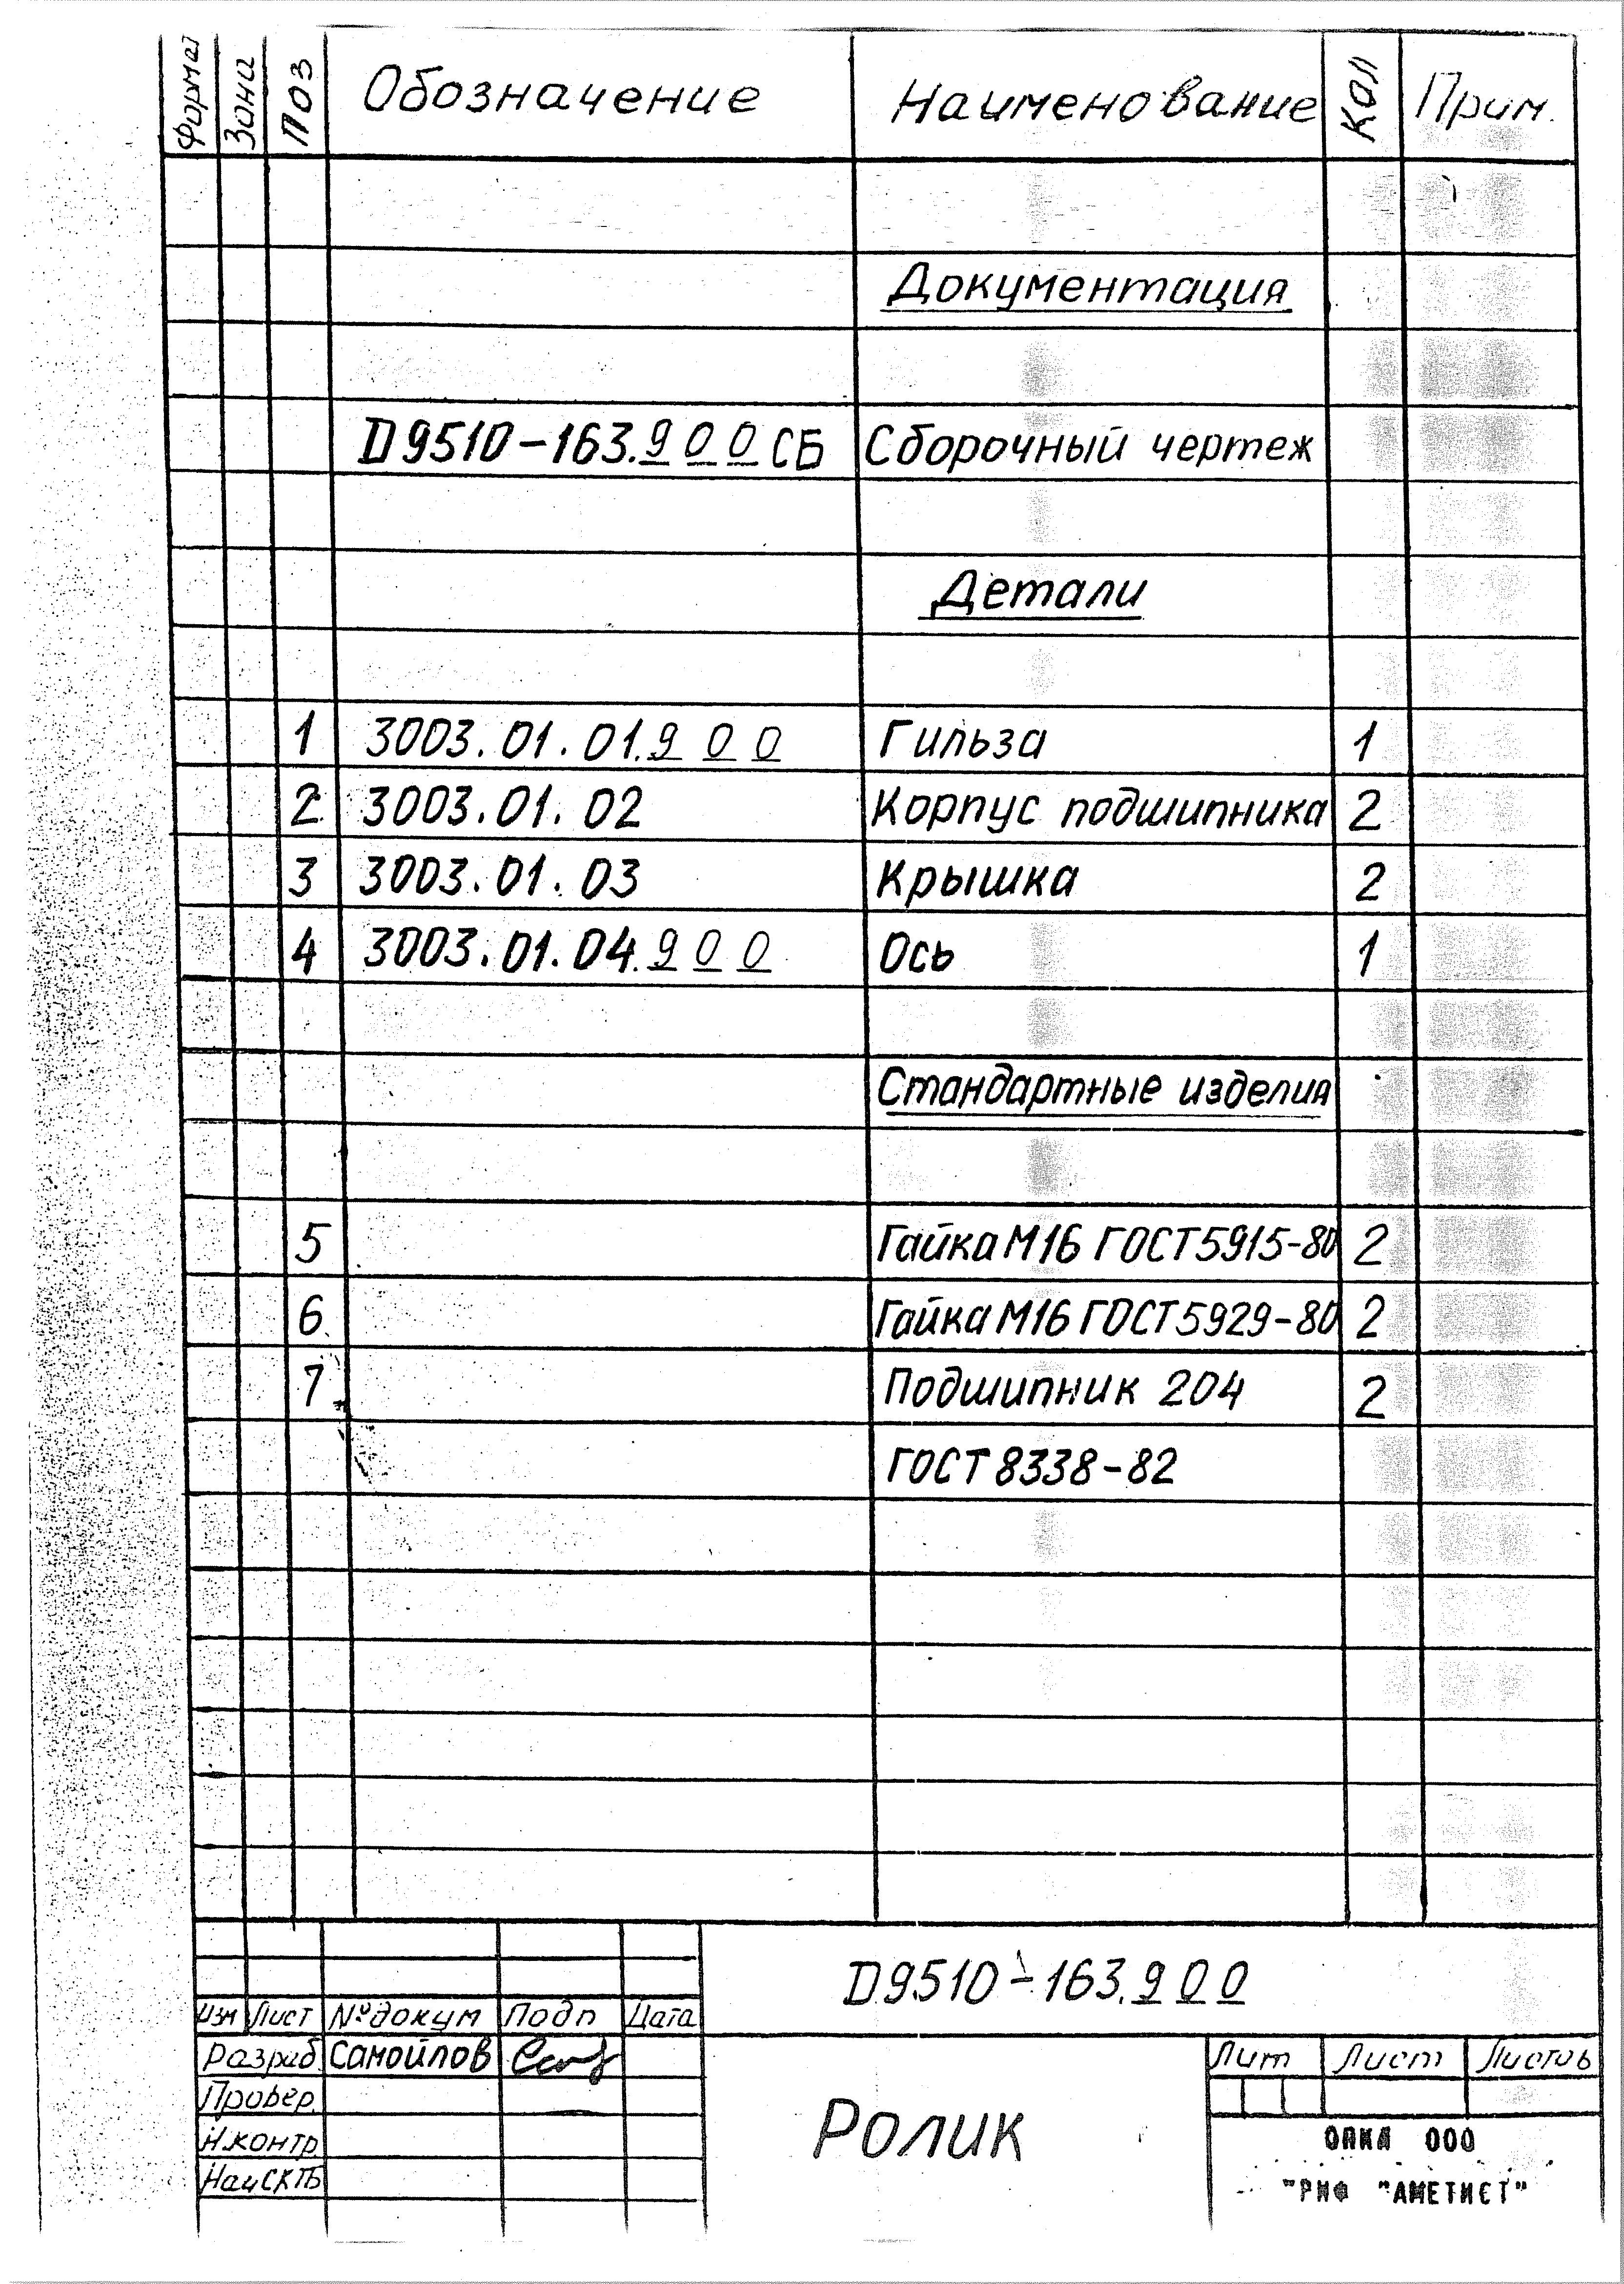 Формат Зона Поз Обозначение Наименование Кол Прим.
Документация
D9510-163.900 СБ Сборочный чертеж
Детали
1 3003.01.01.900 Гильза 1
2 3003.01.02 Корпус подшипника 2
3 3003.01.03 Крышка 2
4 3003.01.04.900 Ось 1
Стандартные изделия
5 Гайка М16 ГОСТ 5915-80 2
6 Гайка М16 ГОСТ 5929-80 2
7 Подшипник 204 2
ГОСТ 8338-82
D9510-163.900
Изм Лист №докум Подп Дата
Разраб. Самойлов
Провер.
Н.контр.
НачСКТБ
Ролик
Лит Лист Листов
ООО
"РИФ "АМЕТИСТ"